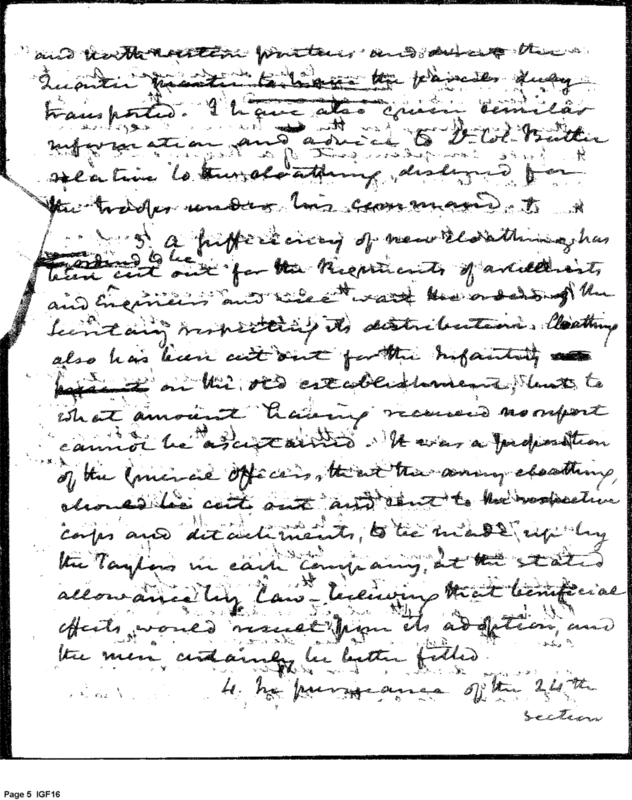 and north western posters and direct the
Quarter master to have the parcels duly
transported. I have also given similar
information and advice to Lt. Col. Butler
relative to the cloathing destined for
the troops under his command.
3 A sufficiency of new cloathing has
ordered to be
been cut out for the Regiments of artillerists
and Engineers and will wait the orders of the
Secretary respecting its distribution. Cloathing
also has been cut out for the Infantry
on the old establishment, but to
what amount having received no report
cannot be ascertained. It was a proposition
of the General Officers, that the army cloathing,
should be cut out and sent to the respective
corps and detachments, to be made up by
the Taylors in each company, at the stated
allowance by law - believing that beneficial
effects would result from its adoption, and
the men certainly be better fitted
4. In pursuance of the 24th
section
Page 5 IGF16